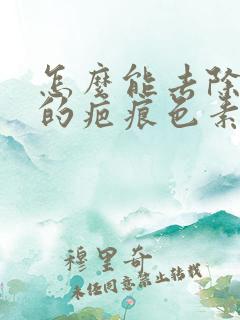 怎麼能去除
的疤痕色素
穆里奇
未经同意禁止转载